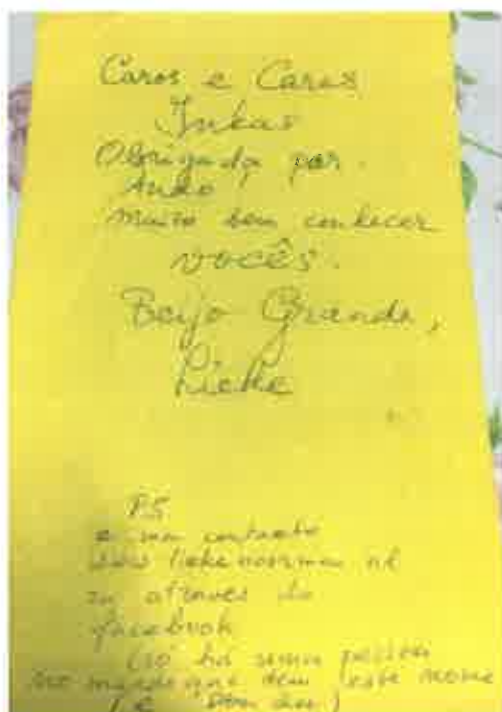 Caros e Caras
Inkas
Obrigada por
tudo
muito bom conhecer
vocês.
Beijo Grande,
Lieke
P.S
contacto
através do
facebook
(só há uma pessoa
no mundo que tem este nome
(E